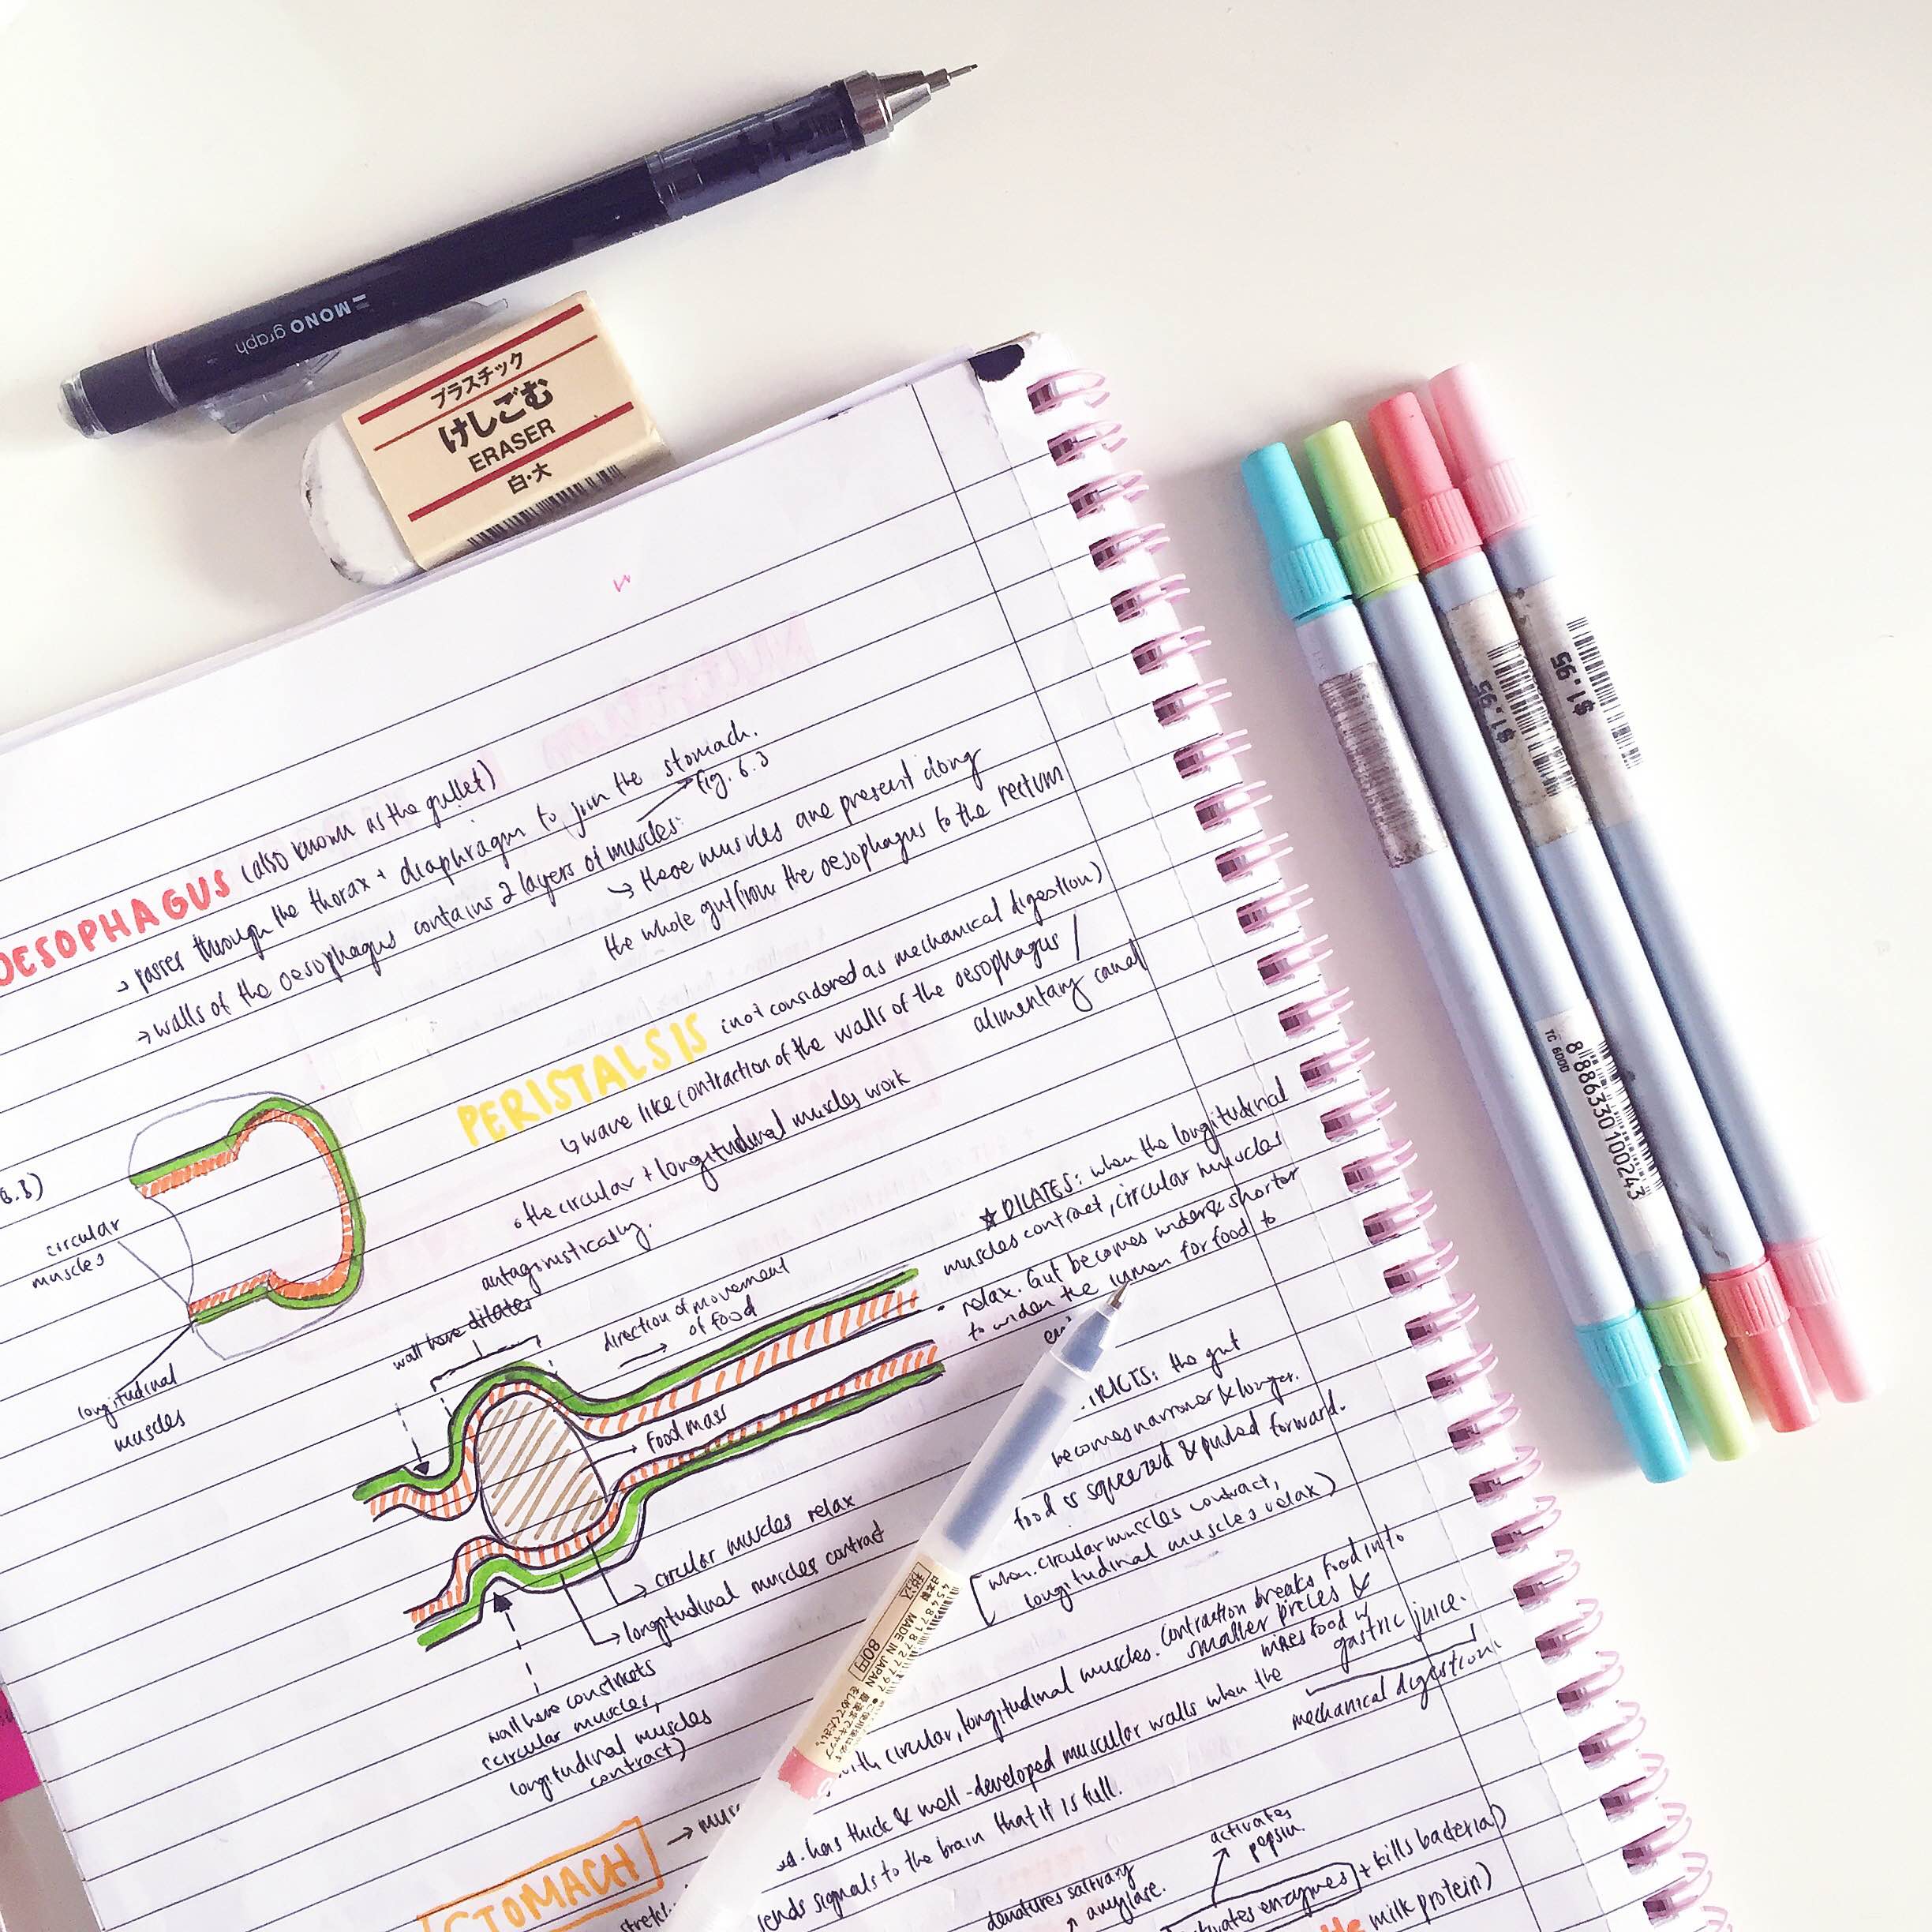 MONO graph
プラスチック
けしごむ
ERASER
白・大
OESOPHAGUS (also known as the gullet)
→ passes through the thorax + diaphragm to join the stomach.
→ walls of the oesophagus contains 2 layers of muscles:
fig. 6.3
→ these muscles are present along
the whole gut (from the oesophagus to the rectum
PERISTALSIS (not considered as mechanical digestion)
↳ wave like contraction of the walls of the oesophagus /
alimentary canal
• the circular + longitudinal muscles work
antagonistically.
6.3)
circular
muscles
longitudinal
muscles
wall here dilates
direction of movement
of food
food mass
circular muscles relax
longitudinal muscles contract
wall here constricts
(circular muscles,
longitudinal muscles
contract)
☆ DILATES: when the longitudinal
muscles contract, circular muscles
relax. Gut becomes wider & shorter
to widen the lumen for food to
en
TRICTS: the gut
becomes narrower & longer.
food is squeezed & pushed forward.
(when circular muscles contract,
longitudinal muscles relax)
STOMACH
→ musc
with circular, longitudinal muscles. Contraction breaks food into
smaller pieces &
mixes food w
gastric juice.
mechanical digestion
has thick & well-developed muscular walls when the
sends signals to the brain that it is full.
stretc
activates
pepsin.
denatures salivary
amylase.
activates enzymes + kills bacteria)
milk protein)
MADE IN JAPAN
80円
$1.95
$1.95
TC 6000
8 886330 100243